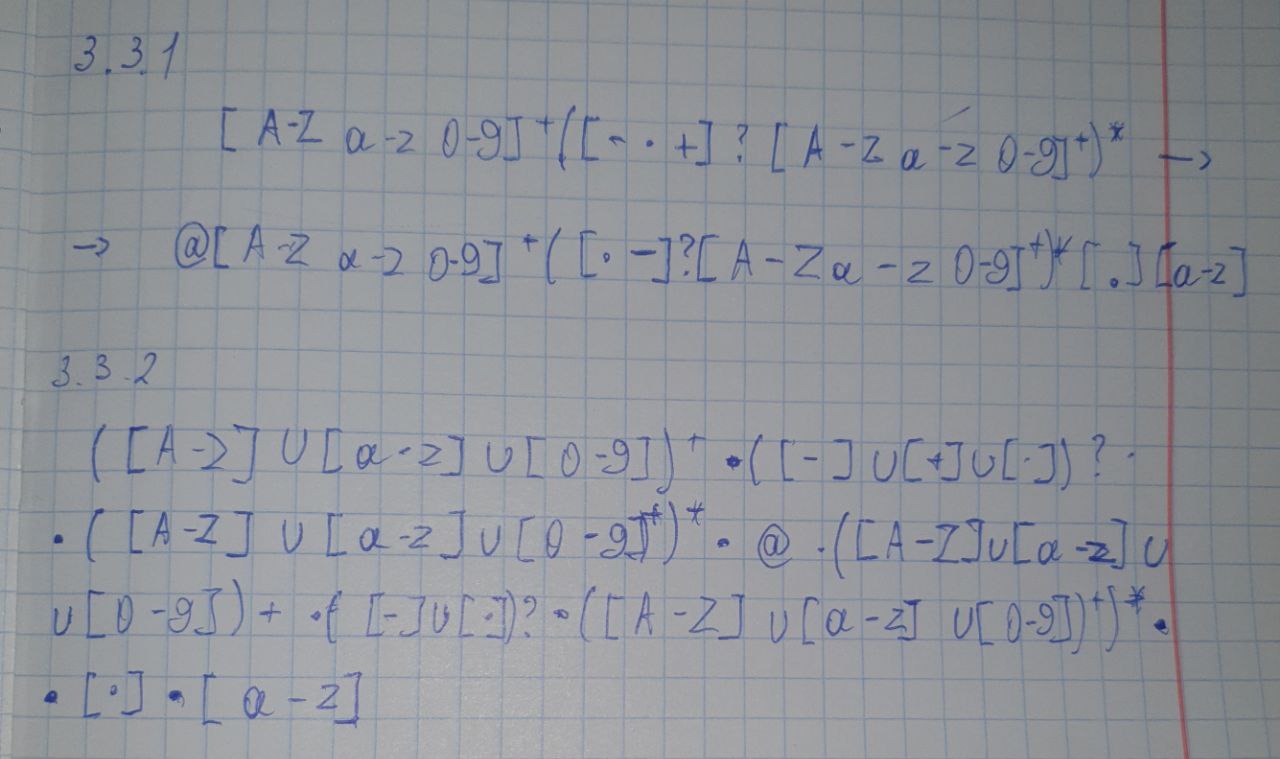 3.3.1
[A-Z a-z 0-9]⁺([-.+]?[A-Z a-z 0-9]⁺)* →
→ @[A-Z a-z 0-9]⁺([.-]?[A-Z a-z 0-9]⁺)*[.][a-z]
3.3.2
([A-Z] ∪ [a-z] ∪ [0-9])⁺ • ([-] ∪ [+] ∪ [.])? ·
• ([A-Z] ∪ [a-z] ∪ [0-9]⁺)* • @ · ([A-Z] ∪ [a-z] ∪
∪ [0-9])+ • ([-] ∪ [.])? • ([A-Z] ∪ [a-z] ∪ [0-9])⁺)* •
• [.] • [a-z]